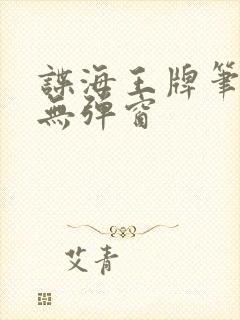 諜海王牌筆
無彈窗
艾青